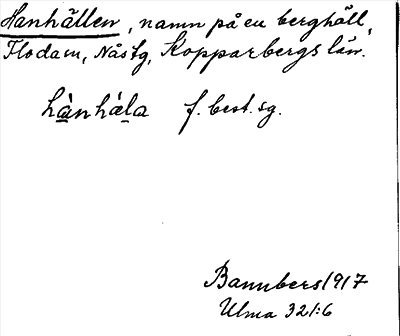 Hanhällen, namn på en berghäll,
Floda sn, Nås tg, Kopparbergs län.
hànhála f. best. sg.
Bannbers 1917
Ulma 321:6